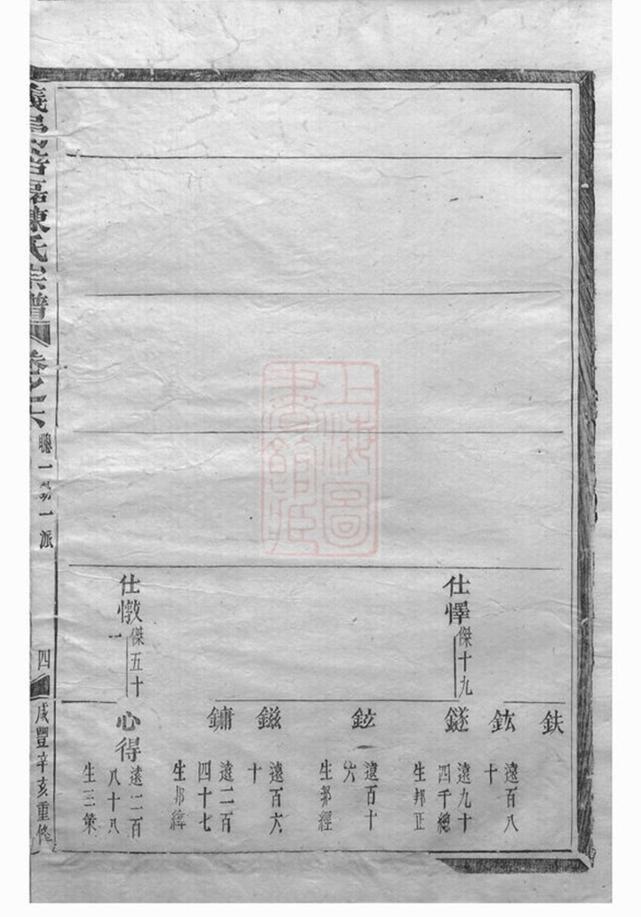 仕懌
傑十九
仕憞
傑五十
一
鈇
鈜
遠百八
十
鐩
遠九十
四千總
生邦正
鉉
遠百十
六
生邦經
鎡
遠百六
十
鏞
遠二百
四十七
生邦緯
心得
遠二百
八十八
生三策
陳氏宗譜
卷之六
一派
四
咸豐辛亥重修
上海圖
書館藏